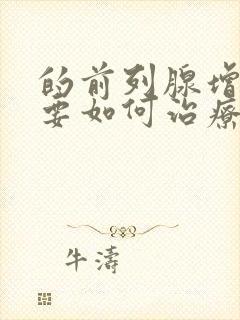 的前列腺增
要如何治療
牛濤